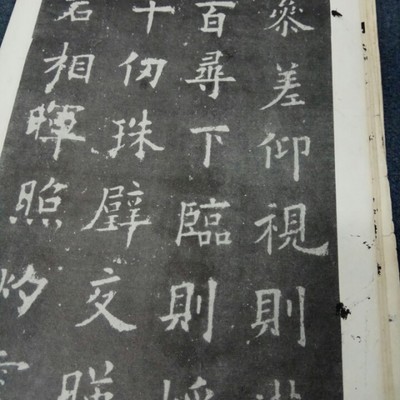 參差仰視則
百尋下臨則
千仞珠璧交
碧相暉照灼